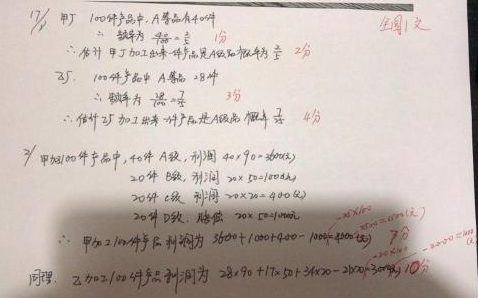 17/ 甲厂 100件产品中, A等品有40件 全国1文
∴ 频率为 40/100 = 2/5 1分
∴ 估计甲厂加工出来一件产品是A级品概率为 2/5 2分
乙厂. 100件产品中 A等品 28件
∴ 频率为 28/100 = 7/25 3分
∴ 估计乙厂加工出来一件产品是A级品概率 4分
2/ 甲加工100件产品中, 40件 A级, 利润 40×90=3600(元)
20件 B级, 利润 20×50=1000元
20件 C级 利润 20×20=400(元)
20件 D级. 赔偿 20×50=1000元
∴ 甲加工100件产品利润为 3600+1000+400-1000 7分
同理. 乙加工100件产品利润为 28×90+17×50+34×20- 10分